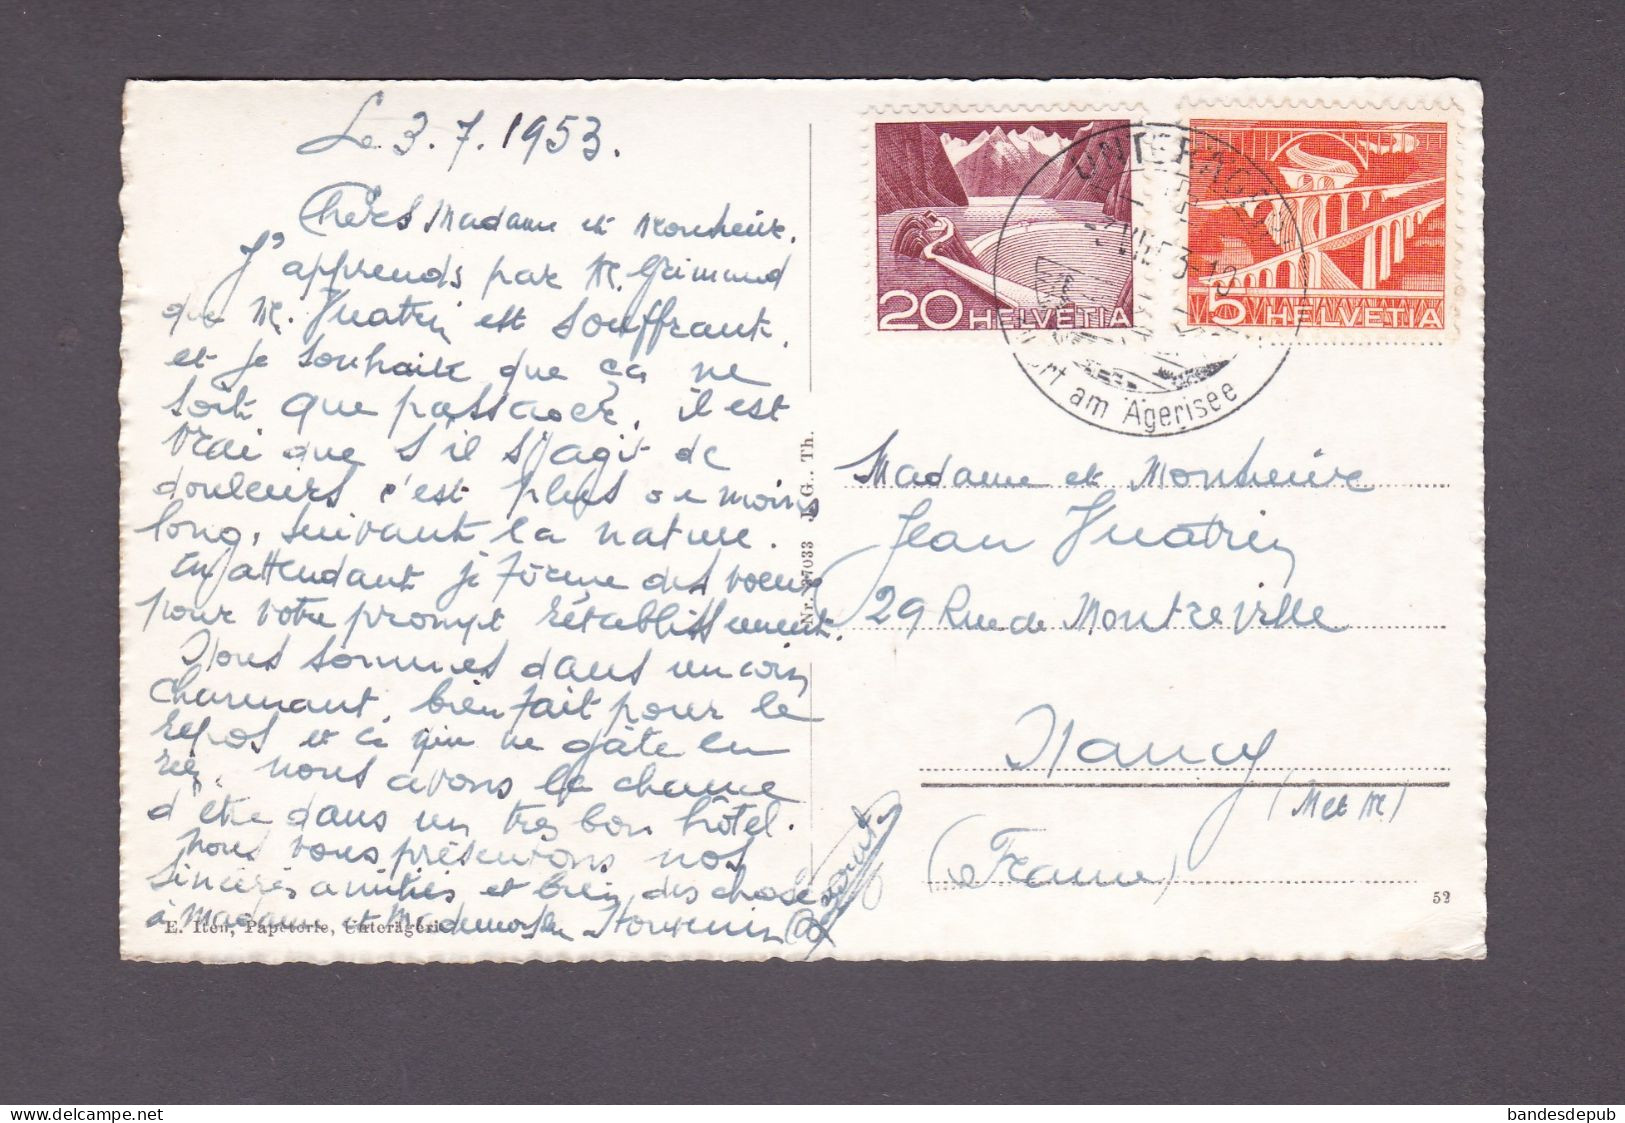 Le 3.7.1953.
Chers Madame et Monsieur,
J'apprends par M. Grimaud
que M. Vuatrin est souffrant,
et je souhaite que ça ne
soit que passager, il est
vrai que s'il s'agit de
douleurs c'est plus ou moins
long, suivant la nature.
En attendant je forme des voeux
pour votre prompt rétablissement.
Nous sommes dans un coin
charmant, bien fait pour le
repos et ce qui ne gâte en
rien, nous avons la chance
d'être dans un très bon hôtel.
Nous vous présentons nos
sincères amitiés et bien des choses
à Madame et Mademoiselle
E. Iten, Papeterie, Unterägeri
Nr. 27033 J. G.. Th.
20 HELVETIA
5 HELVETIA
UNTERAEGERI
-3.VII.53-18
am Ägerisee
Madame et Monsieur
Jean Vuatrin
29 Rue de Montreville
Nancy
(M et M)
(France)
52
bandesdepub